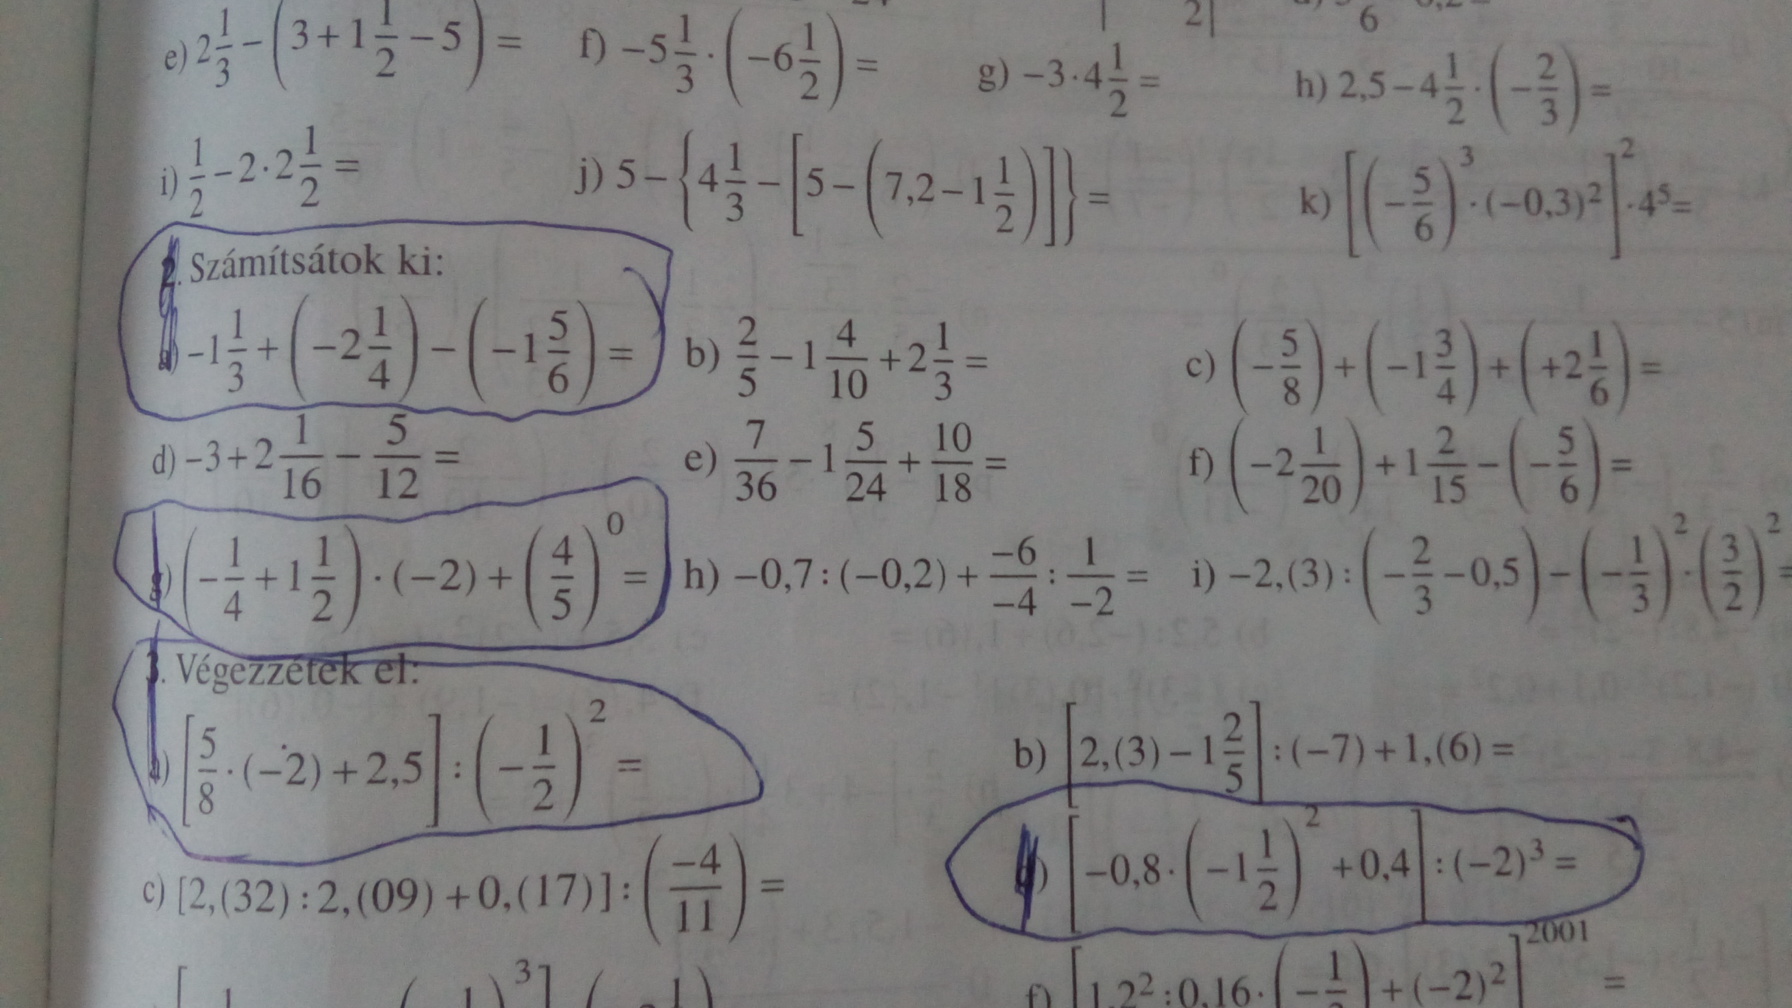 e) 2 1/3 − (3 + 1 1/2 − 5) = f) −5 1/3 · (−6 1/2) = g) −3 · 4 1/2 = h) 2,5 − 4 1/2 · (−2/3) =
i) 1/2 − 2 · 2 1/2 = j) 5 − {4 1/3 − [5 − (7,2 − 1 1/2)]} = k) [(−5/6)³ · (−0,3)²]² · 4⁵ =
2. Számítsátok ki:
a) −1 1/3 + (−2 1/4) − (−1 5/6) = b) 2/5 − 1 4/10 + 2 1/3 = c) (−5/8) + (−1 3/4) + (+2 1/6) =
d) −3 + 2 1/16 − 5/12 = e) 7/36 − 1 5/24 + 10/18 = f) (−2 1/20) + 1 2/15 − (−5/6) =
g) (−1/4 + 1 1/2) · (−2) + (4/5)⁰ = h) −0,7 : (−0,2) + −6/−4 : 1/−2 = i) −2,(3) : (−2/3 − 0,5) − (−1/3)² · (3/2)² =
3. Végezzétek el:
a) [5/8 · (−2) + 2,5] : (−1/2)² = b) [2,(3) − 1 2/5] : (−7) + 1,(6) =
c) [2,(32) : 2,(09) + 0,(17)] : (−4/11) = d) [−0,8 · (−1 1/2)² + 0,4] : (−2)³ =
f) [1,2² : 0,16 · (−1/ ) + (−2)²]²⁰⁰¹ =